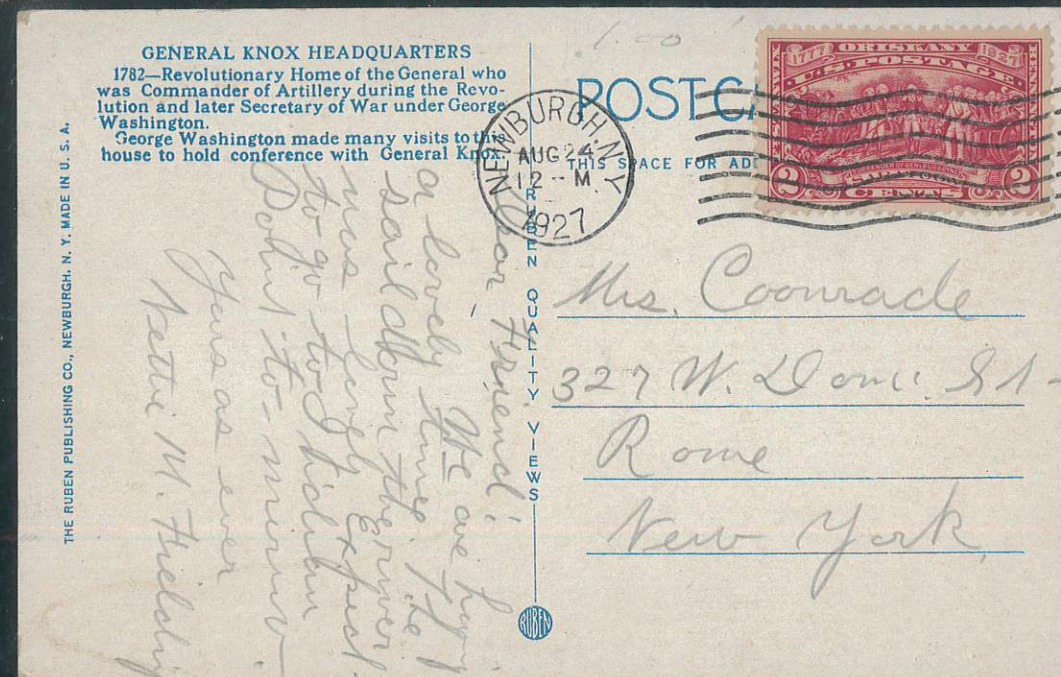 GENERAL KNOX HEADQUARTERS
1782—Revolutionary Home of the General who
was Commander of Artillery during the Revo-
lution and later Secretary of War under George
Washington.
George Washington made many visits to this
house to hold conference with General Knox.
THE RUBEN PUBLISHING CO., NEWBURGH, N. Y. MADE IN U. S. A.
RUBEN QUALITY VIEWS
RUBEN
1.00
POST CA
THIS SPACE FOR AD
NEWBURGH N.Y.
AUG 24
12-M
1927
1777 ORISKANY 1927
U.S. POSTAGE
2 CENTS 2
Dear Friend:
We are having
a lovely time the
sail down the river
was lovely Expect
to go to Indian
Point to-morrow.
Yours as ever
Nettie M. Fielding
Mrs. Coonrade
327 W. Dom. St-
Rome
New York